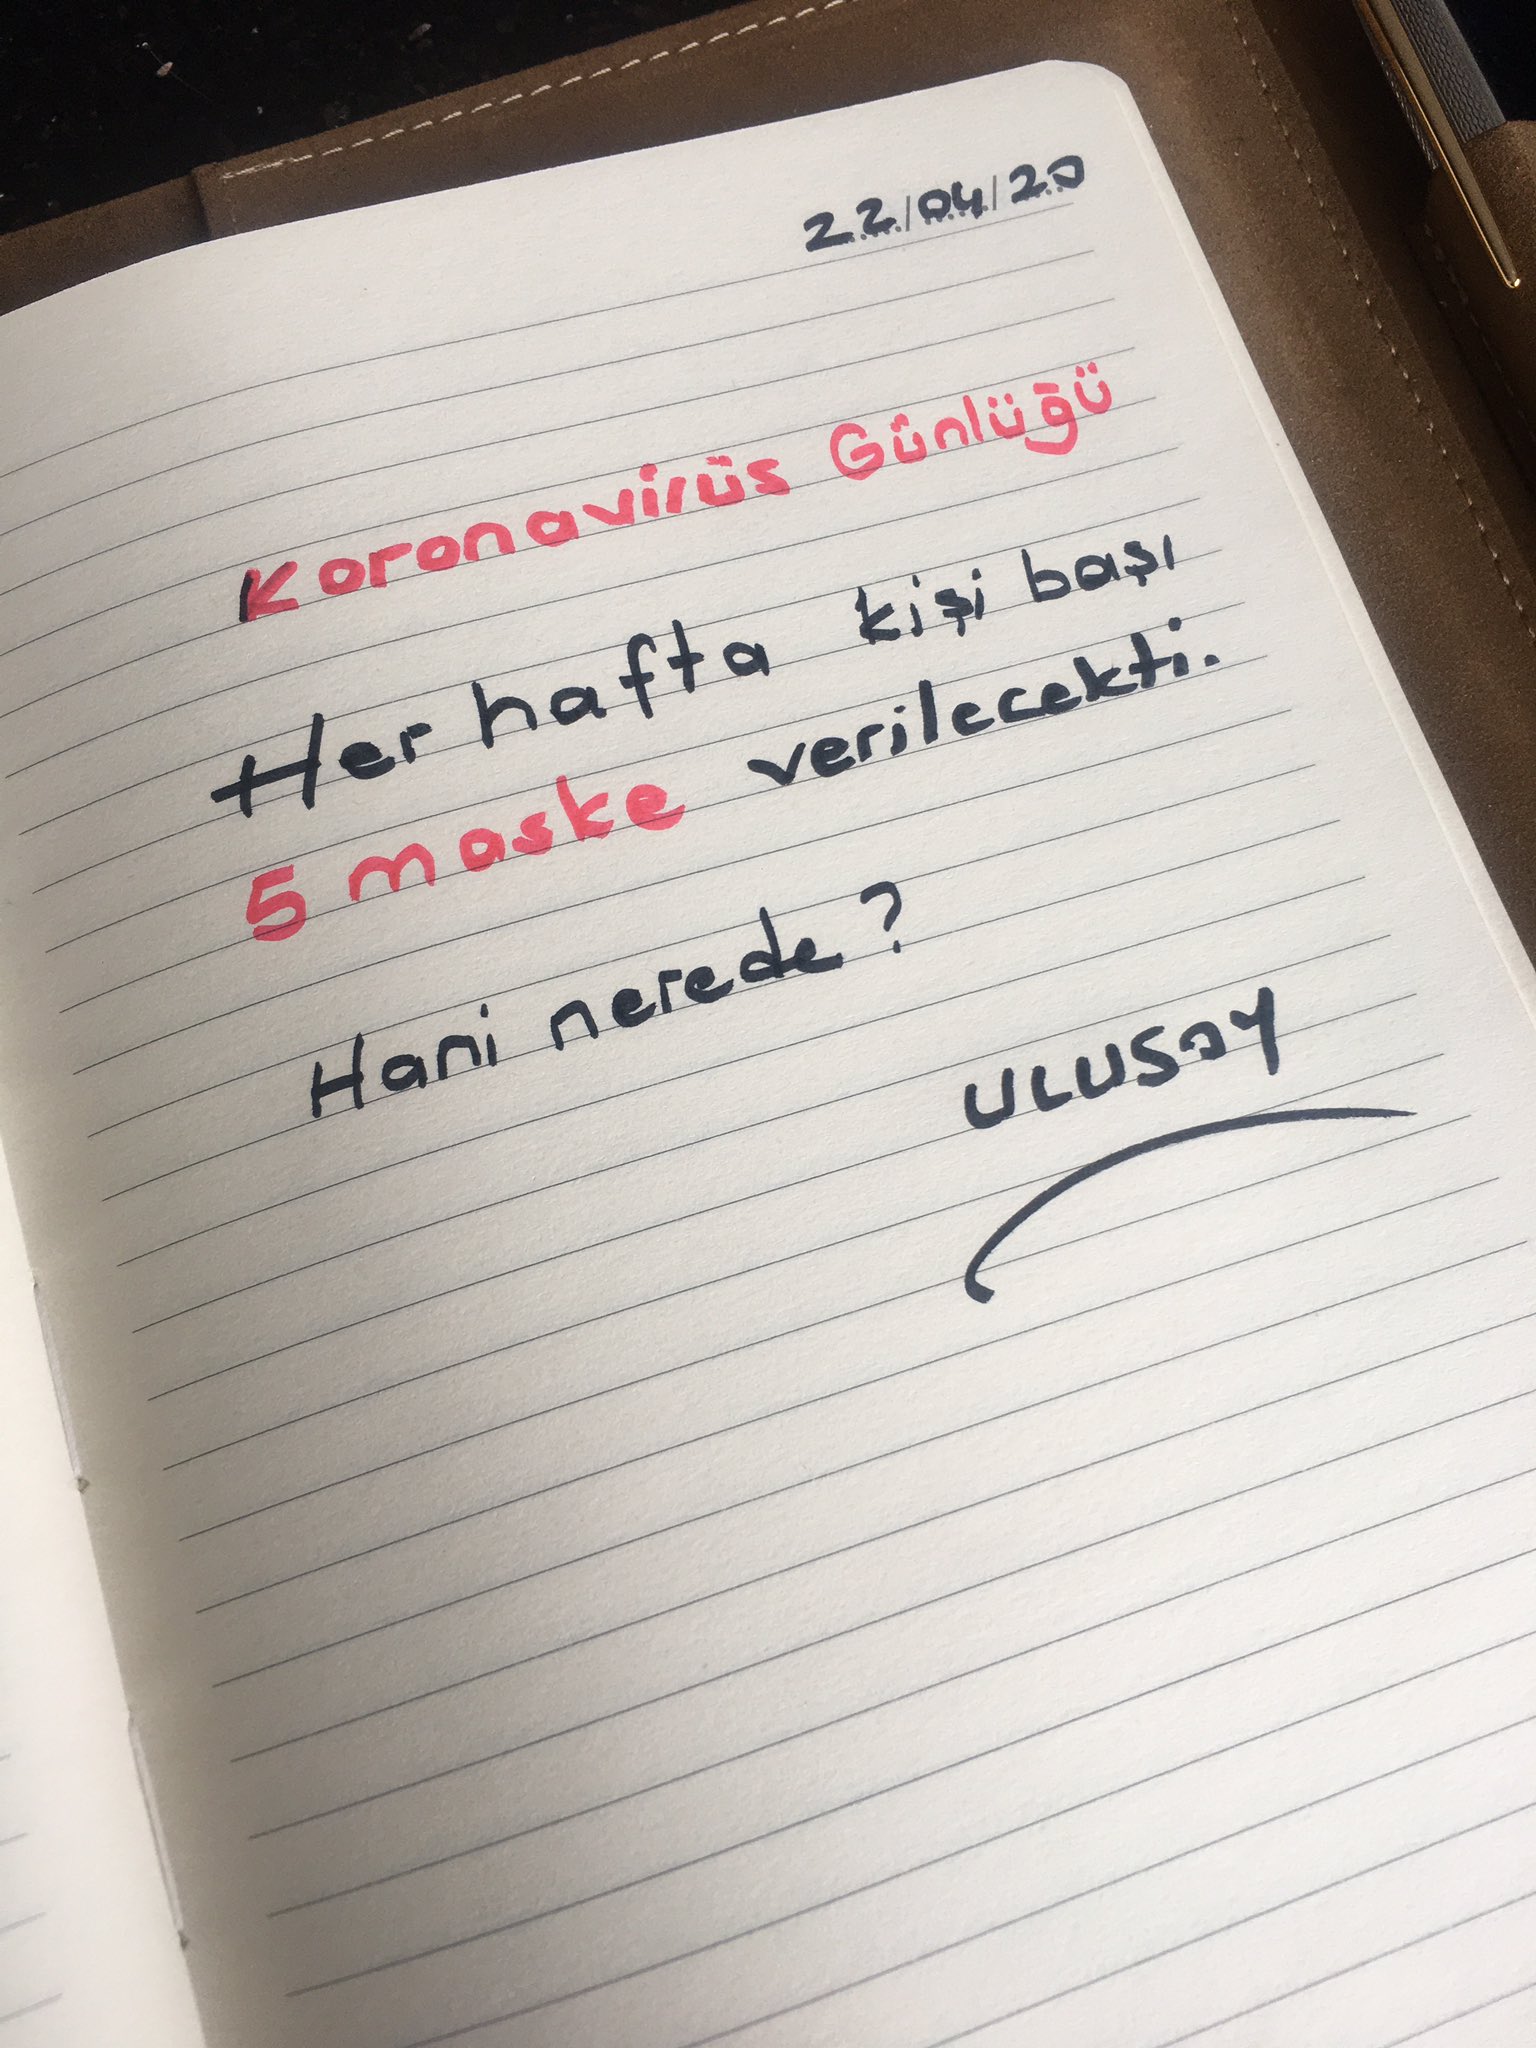 22/04/20
Koronavirüs Günlüğü
Her hafta kişi başı
5 maske verilecekti.
Hani nerede?
ULUSOY